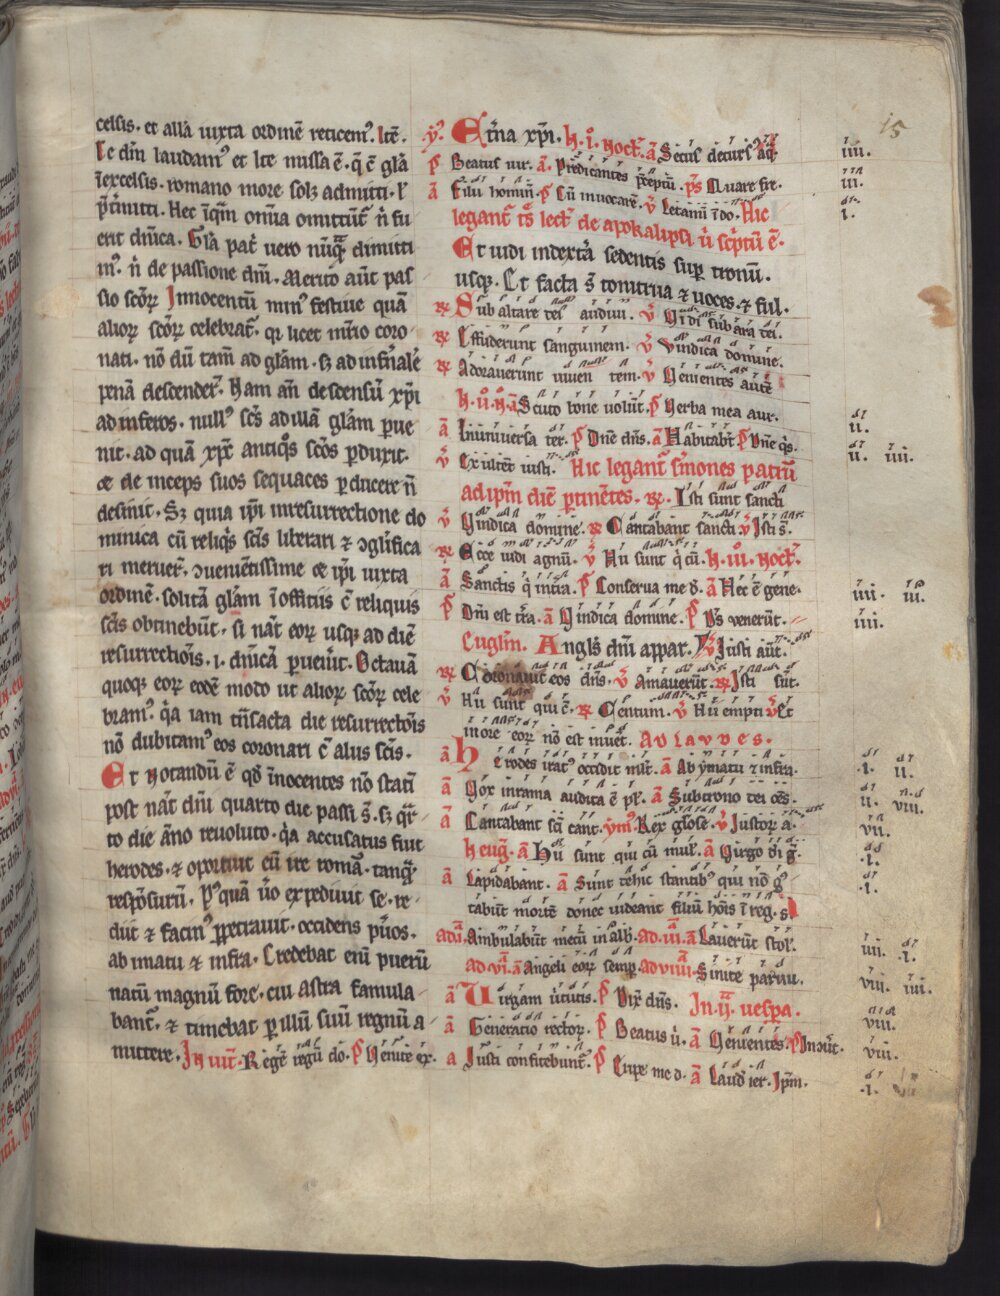 celsis. et allā iuxta ordinē reticem⁹. Itē.
Te dm̄ laudam⁹ et Ite missa ē. q̄ ē glā
īexcelsis. romano more solꝫ admitti. ł
p̄t̄mitti. Hec iq̄m omīa omittūt̄ n̄ fu
erit dnīca. Glā pat̄ vero nūq̄ dimitti
m⁹. n̄ de passione dn̄i. Merito aūt pas
sio sc̄oꝝ Innocentū min⁹ festiue quā
alioꝝ sc̄oꝝ celebrat̄. qꝛ licet mr̄io coro
nati. nō dū tam̄ ad glām. sꝫ ad infn̄alē
penā descender̄. Nam an̄ descensū xp̄i
ad inferos. null⁹ sc̄s ad illā glām perue
nit. ad quā xp̄c antiq̊s sc̄os perduxit.
de inceps suos sequaces perducere n̄
desinit. Sꝫ quia ip̄i inresurrectione do
minica cū reliq̊s sc̄is liberari ⁊ ꝯglifica
ri meruer̄. ꝯuenientissime ip̄i iuxta
ordinē. solitā glām ī offitiis c̄ reliquis
sc̄is obtinebūt. si nat̄ eoꝝ usqꝫ ad diē
resurrectiōis. i. dn̄icā peruen̄it. Octauā
quoqꝫ eoꝝ eodē modo ut alioꝝ sc̄oꝝ cele
bram⁹. q̄a iam t̄nsacta die resurrectōis
nō dubitam⁹ eos coronari c̄ aliis sc̄is.
Et Notandū ē qd̄ īnocentes nō statī
post nat̄ dn̄i quarto die passi s̄. sꝫ qr̄
to die āno reuoluto. q̄a accusatus fuit
herodes. ⁊ oportuit eū ire romā. tanq̄
respōsurū. P⁹quā ṽo expediuit se. re
diit ⁊ facin⁹ perpetrauit. occidens pūos.
ab imatu ⁊ infra. Credebat enī puerū
natū magnū fore. cui astra famula
bant̄. ⁊ timebat per illū suū regnū a
mittere. In uit̄. Regē regū do. p̄ Uenite ex.
ỹ. Etn̄a xp̄i. h. i⁰. Noct̄. ā Secus decurs⁹ aq̄
p̄ Beatus uir. ā. Predicantes p̄ceptū. ps̄ Quare fre.
ā Filii homin̄. p̄ Cū inuocarē. ṽ Letamī ī do. Hic
legant̄ ts̄ lect̄ de apokalipsi ũ sc̄ptū ē.
Et uidi indext̄a sedentis super tronū.
usqꝫ. Et facta s̄ tonitrua ⁊ uoces. ⁊ ful.
℞ Sub altare dei audiui. ṽ Vidi sub ara dei.
℞ Effuderunt sanguinem. ṽ Vindica domine.
℞ Adorauerunt uiuen tem. ṽ Uenientes autē
h. ii⁰. N̄. ā Scuto bone uolūt̄. p̄ Uerba mea aur.
ā Iniuniuersa ter̄. p̄ Dn̄e dn̄s. ā Habitabt̄ p̄ Dn̄e q̊s.
ṽ Exultēt iusti. Hic legant̄ s̄mones patrū
ad ip̄m diē p̄tinētes. ℞. Isti sunt sancti
ṽ Vindica domine. ℞ Cantabant sancti ṽ Isti s̄.
℞ Ecce uidi agnū. ṽ Hii sunt q̇ cū. h. iii⁰. Noct̄.
ā Sanctis q̇ intra. p̄ Conserua me d̄. ā Hec ē gene.
p̄ Dn̄i est tr̄a. ā Vindica domine. p̄ Ds̄ uenerūt.
Euglm̄. Angl̄s dn̄i appar. ṽ Iusti aūt.
℞ Coronauit eos dn̄s. ṽ Amauerūt. ℞ Isti sūt.
ṽ Hii sunt qui c̄. ℞ Centum. ṽ Hii empti ṽ Et
in ore eoꝝ nō est inuēt̄. Ad laudes.
ā Herodes irat⁹ occidit mlt̄. ā Ab ymatu ⁊ infra.
ā Vox inrama audita ē pl̄. ā Subtrono dei oēs.
ā Cantabant sc̄i cant. ym⁹. Rex gl̄ose. ṽ Iustoꝝ a.
In eug̃. ā Hii sunt qui cū mul̄. ā Uirgo di ḡ.
ā Lapidabant. ā Sunt dehic stantib⁹ qui nō g⁹
tabūt mortē donec uideant filiū hōis ī reg. s
ad i. Ambulabūt mecū in alb. ad. iii. ā Lauerūt stol̄.
ad. vi. ā Angeli eoꝝ semp. ad viiii. Sinite paruu.
ā Uirgam uirtutis. p̄ Dix̄ dn̄s. In. ii. uespa.
ā Generatio rectoꝝ. p̄ Beatus ũ. ā Uenientes. p̄ In ꝯūt.
ā Iusti confitebunt̄. p̄ Eripe me d. ā Laud ier. Ip̄m.
15
iiii.
iii.
i.
ii.
ii. iiii.
iii. iii.
iiii.
i. ii.
ii. viii.
vii.
i.
i.
iii. i.
viii. iiii.
viii.
viii.
i.